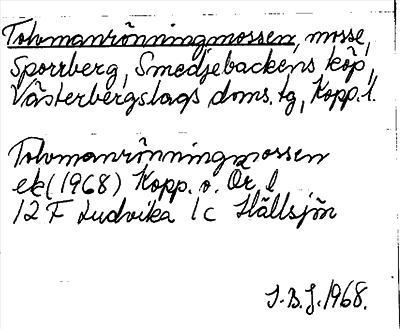 Tolvmanrönningmossen, mosse,
Sporrberg, Smedjebackens köp,
Västerbergslags doms.tg, Kopp.l.
Tolvmanrönningmossen
ek (1968) Kopp. o. Ör. l
12 F Ludvika 1c Hällsjön
J.B.J. 1968.